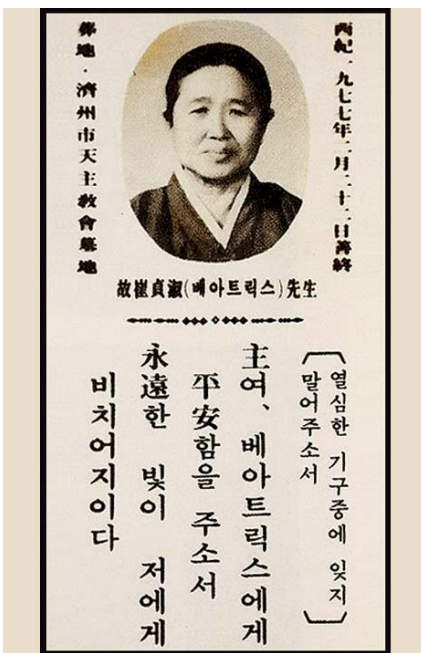 西紀一九七七年二月二十二日善終
葬地·濟州市天主敎會墓地
故崔貞淑(베아트릭스)先生
열심한 기구중에 잊지
말어주소서
主여、베아트릭스에게
平安함을 주소서
永遠한 빛이 저에게
비치어지이다